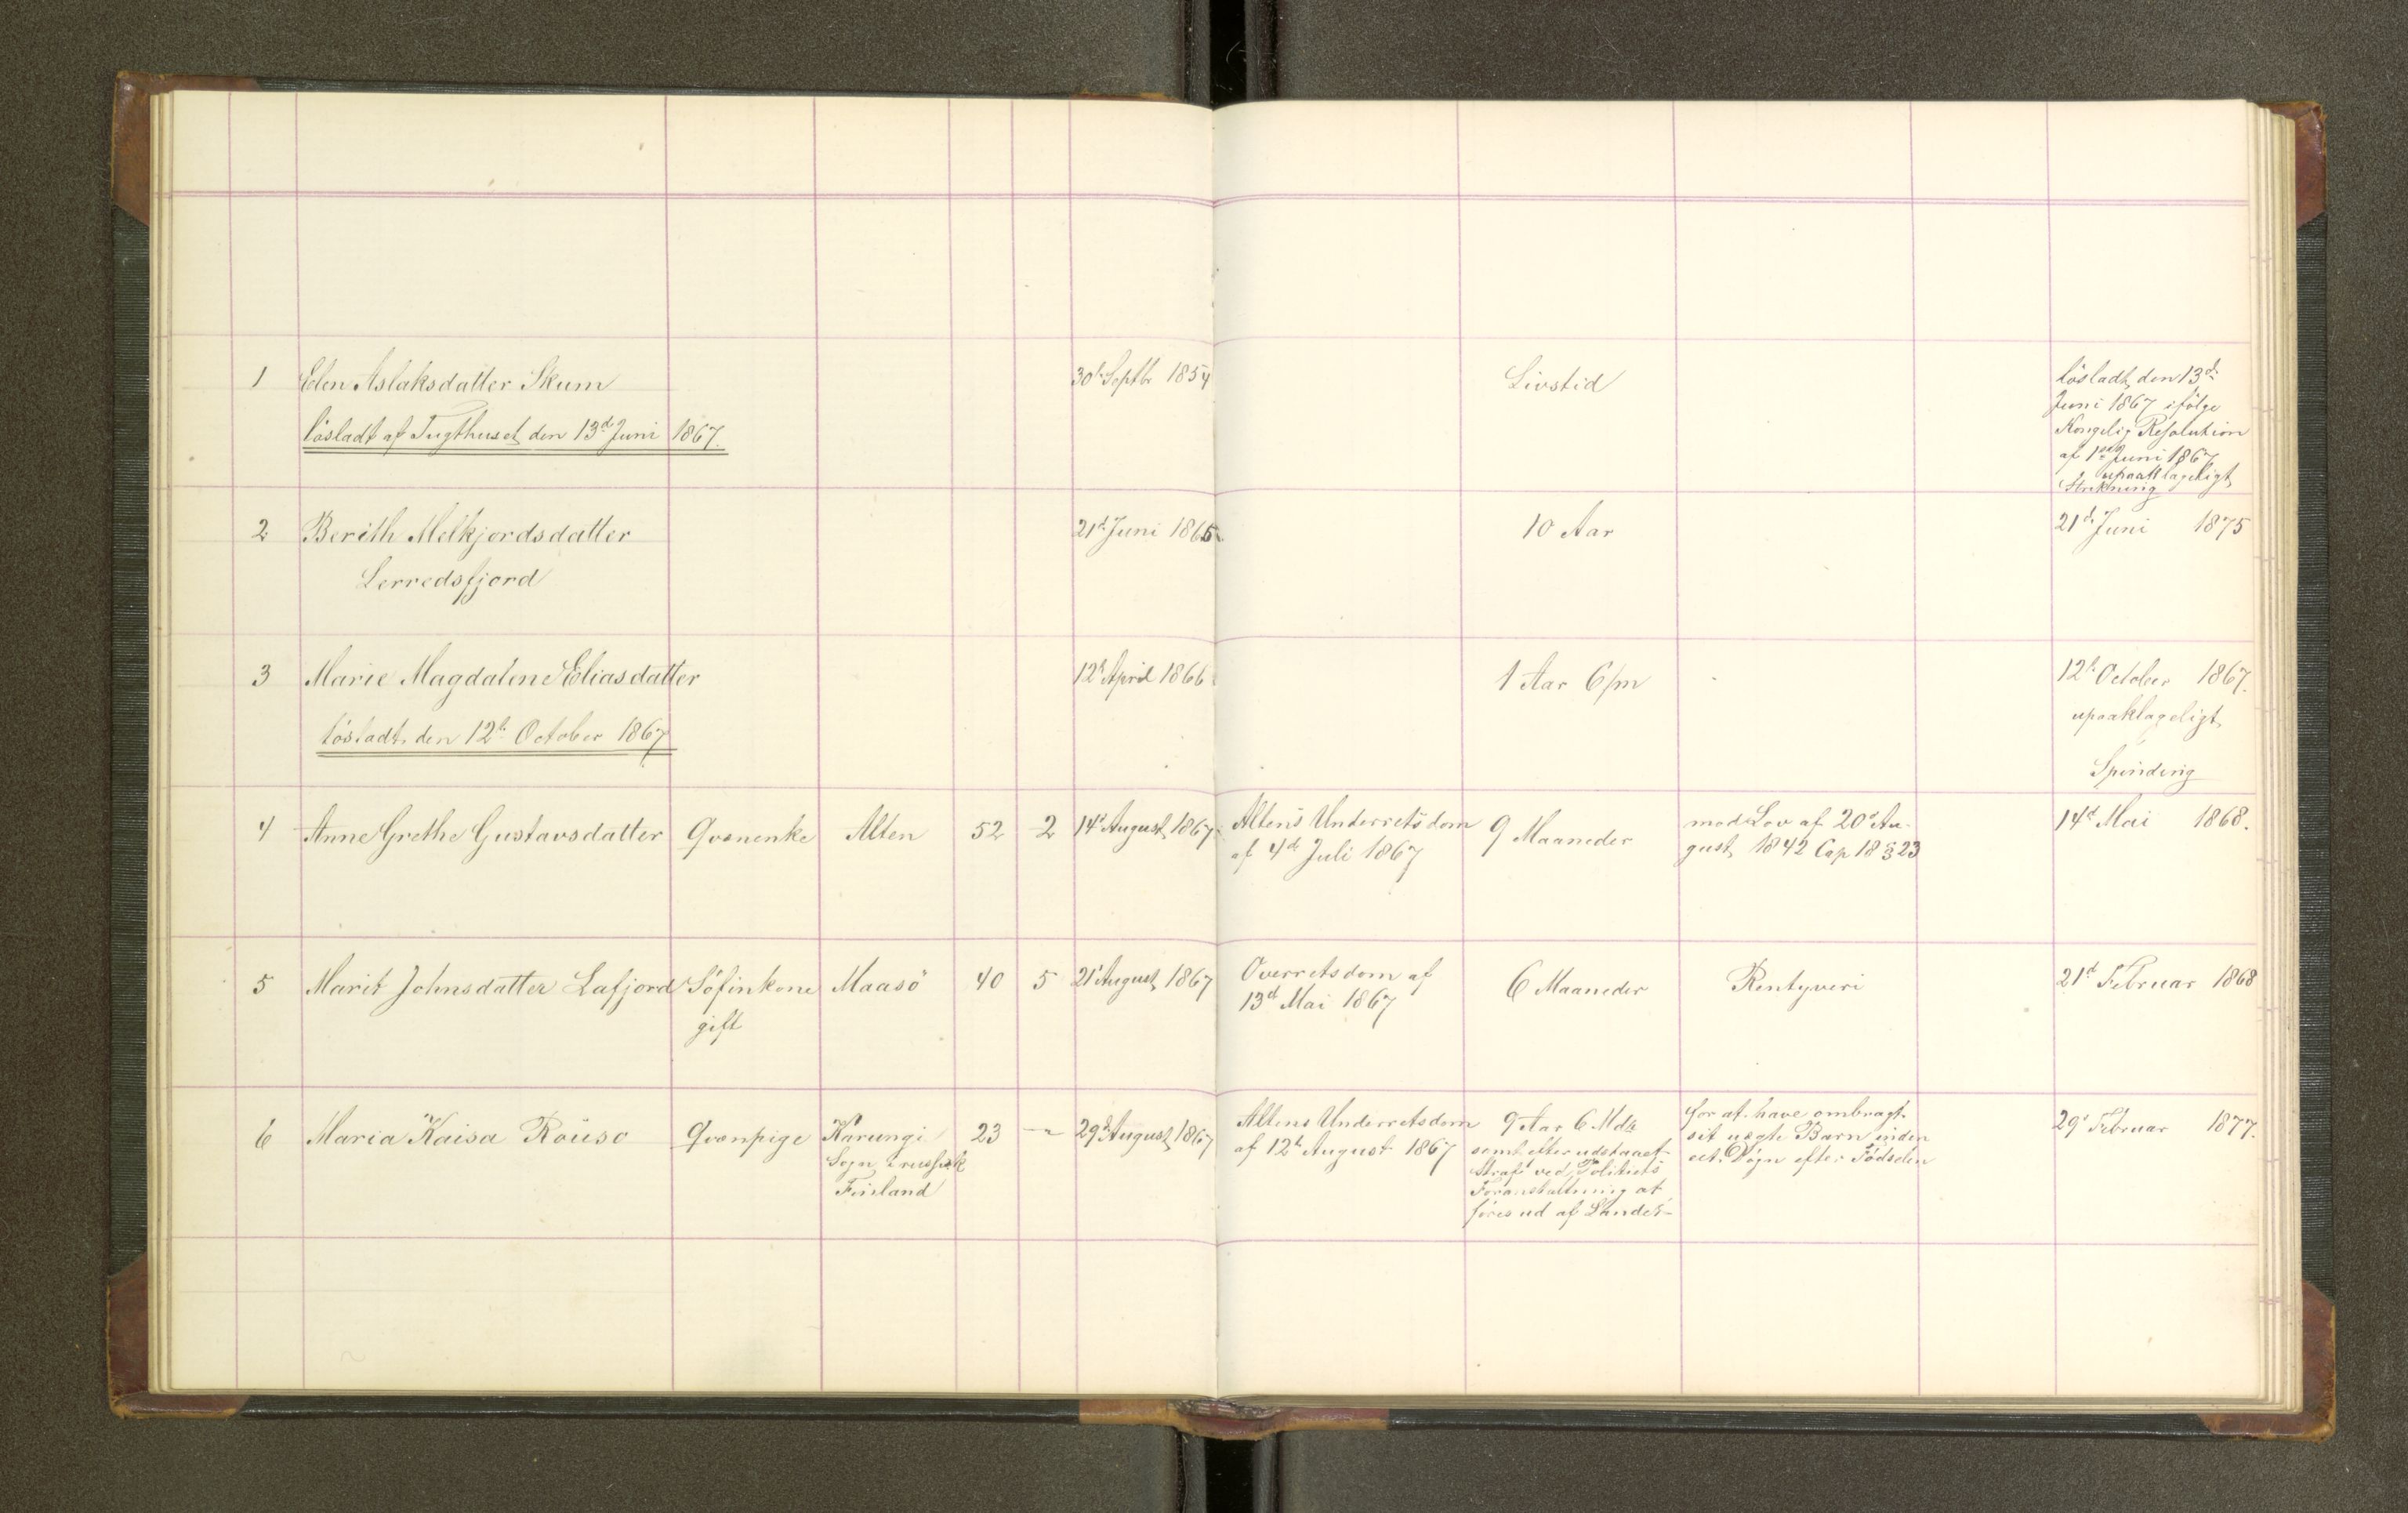 1 Elen Aslaksdatter Skum 30te Septbr 1854 Livstid løsladt den 13de
løsladt af Tugthuset den 13de Juni 1867. Juni 1867 ifølge
Kongelig Resolution
af 1ste Juni 1867
upaaklageligt
Strikning
2 Berith Melkjordsdatter 21de Juni 1865. 10 Aar 21de Juni 1875
Lerredsfjord
3 Marie Magdalene Eliasdatter 12te April 1866 1 Aar 6/m 12te October 1867.
løsladt den 12te October 1867. upaaklageligt
Spinding
4 Anne Grethe Gustavsdatter Qvænenke Alten 52 2 14de August 1867. Altens Underretsdom 9 Maaneder mod Lov af 20de Au- 14de Mai 1868.
af 4de Juli 1867 gust 1842 Cap 18 § 23
5 Marit Johnsdatter Lafjord Söfinkone Maasö 40 5 21de August 1867 Overretsdom af 6 Maaneder Rentyveri 21de Februar 1868
gift 13de Mai 1867
6 Maria Kaisa Rouso Qvænpige Karungi 23 — 29de August 1867 Altens Underretsdom 9 Aar 6 Mdr for at have ombragt 29de Februar 1877.
Sogn i russisk af 12te August 1867 samt efter udstaaet sit uægte Barn inden
Finland Straf ved Politiets eet Døgn efter Fødselen
Foranstaltning at
føres ud af Landet